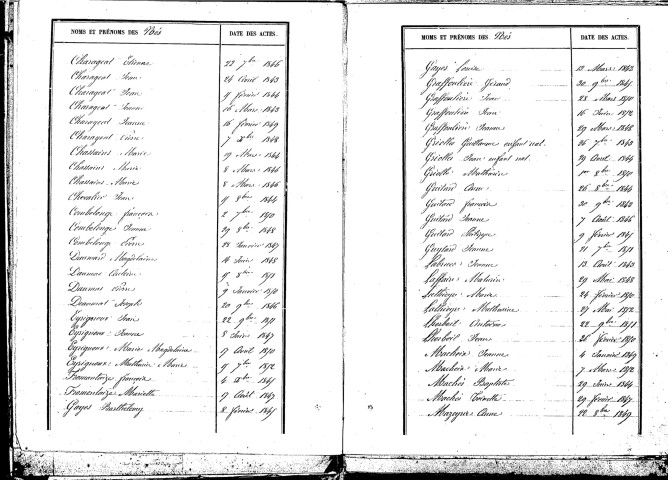 NOMS ET PRÉNOMS DES Nés DATE DES ACTES.
Charageat Etienne 22 7bre 1846
Charageat Jean 24 Août 1843
Charageat Jean 9 février 1844
Charageat Jeanne 16 Mars 1843
Charageat Jeanne 16 février 1849
Charageat Pierre 7 1848
Chassaing Marie 19 Mars 1844
Chassaing Marie 8 Mars 1846
Chassaing Marie 8 Mars 1846
Chevalier Jean 9 8bre 1844
Combelonge françois 2 7bre 1850
Combelonge Jeanne 29 8bre 1848
Combelonge Pierre 28 Janvier 1847
Daumard Magdelaine 16 Juin 1845
Daumas 9 8bre 1851
Daumas 9 Janvier 1850
Daummat Joseph 20 9bre 1846
Eyrignoux Jean 22 9bre 1851
Eyrignoux Jeanne 8 Juin 1847
Eyrignoux Marie Magdelaine 17 Avril 1850
Eyrignoux Mathurin Marie 9 7bre 1852
Fromentoize françois 4 1845
Fromentoize Mariette 9 Août 1847
Gayes Barthélemy 8 février 1845
NOMS ET PRÉNOMS DES Nés DATE DES ACTES.
Gayes Louise 12 Mars 1843
Graffoulière Géraud 30 9bre 1845
Graffoulière Jean 28 Mars 1850
Graffoulière Jean 16 Juin 1852
Graffoulière Jeanne 29 Mars 1848
Griolles Guillaume enfant nat. 26 7bre 1843
Griolles Jean enfant nat. 29 Août 1849
Griolles Mathurin 1er 8bre 1850
Guitard Anne 26 8bre 1844
Guitard françoise 30 9bre 1842
Guitard Jeanne 7 Août 1846
Guitard Philippe 9 février 1845
Guytard Jeanne 21 7bre 1851
Jeanne 13 Août 1843
Laffaire Mathurin 29 Mai 1848
Marie 24 février 1850
Mathurine 27 Mai 1852
Antoine 22 9bre 1851
Jean 25 février 1850
Macheix Jeanne 4 Janvier 1849
Macheix Marie 7 Mars 1852
Macheix Baptiste 29 Juin 1844
Macheix Toinette 29 février 1845
Mazeyrie Anne 22 8bre 1849